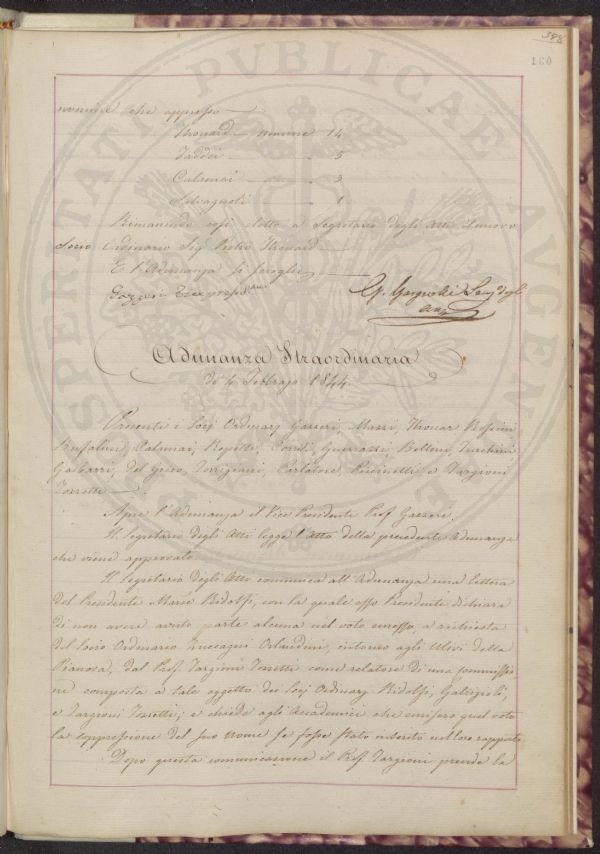 388
180
PROSPERITATI PUBLICAE AUGENDAE
nomine che appresso
Thouar — nomine 14
Taddei — " 5
Calamai — " 3
Salvagnoli — " 1
Rimanendo così eletto a Segretario degli Atti il nuovo
Socio Ordinario Sig Pietro Thouar
E l'Adunanza si scioglie
Gazzeri Vice presidente
Segr degl
Atti
Adunanza Straordinaria
de 4 Febbrajo 1844
Presenti i Socj Ordinarj Gazzeri, Mazzi, Thouar
Buffalini, Calamai, Repetti, Conti, Guerrazzi, Bettini, Turchini
Gabarri, del Greco, Torrigiani, Puccinelli e Targioni
Tozzetti
Apre l'Adunanza il Vice Presidente Prof Gazzeri.
Il Segretario degli Atti legge l'Atto della precedente Adunanza
che viene approvato.
Il Segretario degli Atti comunica all'Adunanza una lettera
del Presidente March Ridolfi, con la quale esso Presidente dichiara
di non avere avuto parte alcuna nel voto emesso, a richiesta
del Socio Ordinario Zuccagni Orlandini, intorno agli Ulivi della
Pianosa, dal Prof. Targioni Tozzetti come relatore di una Commissio
ne composta a tale oggetto dei Socj Ordinarj Ridolfi, Gallizioli,
e Targioni Tozzetti; e chiede agli Accademici che emisero quel voto
la soppressione del suo nome se fosse stato inserito nel loro rapporto.
Dopo questa comunicazione il Prof. Targioni prende la